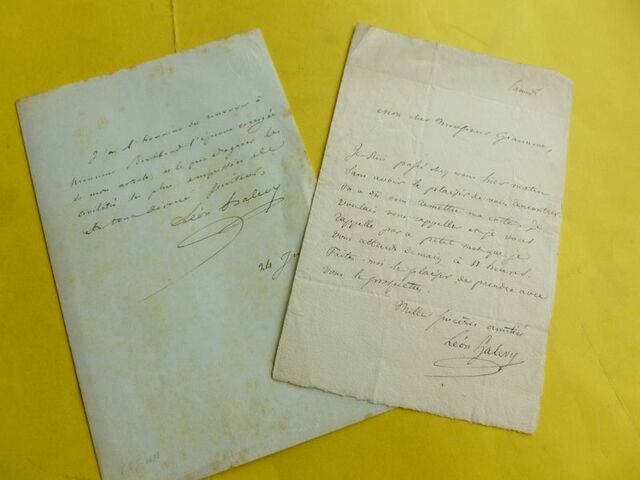 J'ai l'honneur de renvoyer à
Monsieur l'épreuve corrigée
de mon article, et le prie d'agréer les
civilités les plus empressées de
son tout dévoué serviteur,
Léon Halévy
24
Samedi
Mon cher Monsieur
Je suis passé chez vous hier matin
sans avoir le plaisir de vous rencontrer
On a dû vous remettre ma carte. Je
voulais vous rappeler et je vous
rappelle par ce petit mot que je
vous attends demain à 11 heures.
Faites-moi le plaisir de prendre avec
vous le prospectus.
Mille sincères amitiés
Léon Halévy